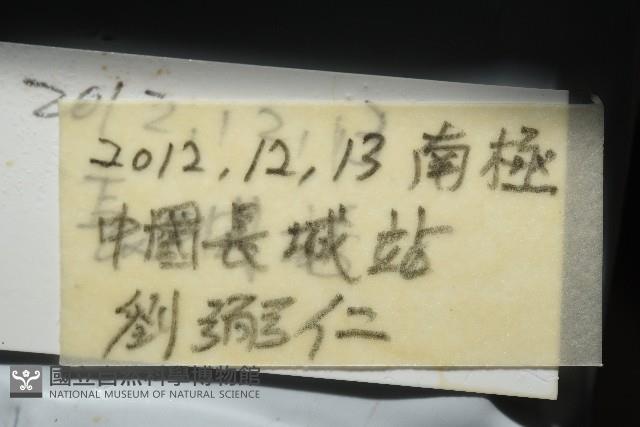 2012
2012.12.13 南極
中國長城站
劉弼仁
國立自然科學博物館
NATIONAL MUSEUM OF NATURAL SCIENCE